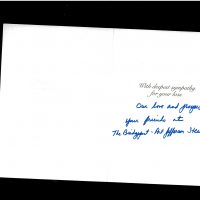 With deepest sympathy
for your loss.
Our love and prayers
your friends at
The Bridgeport - Port Jefferson Stea